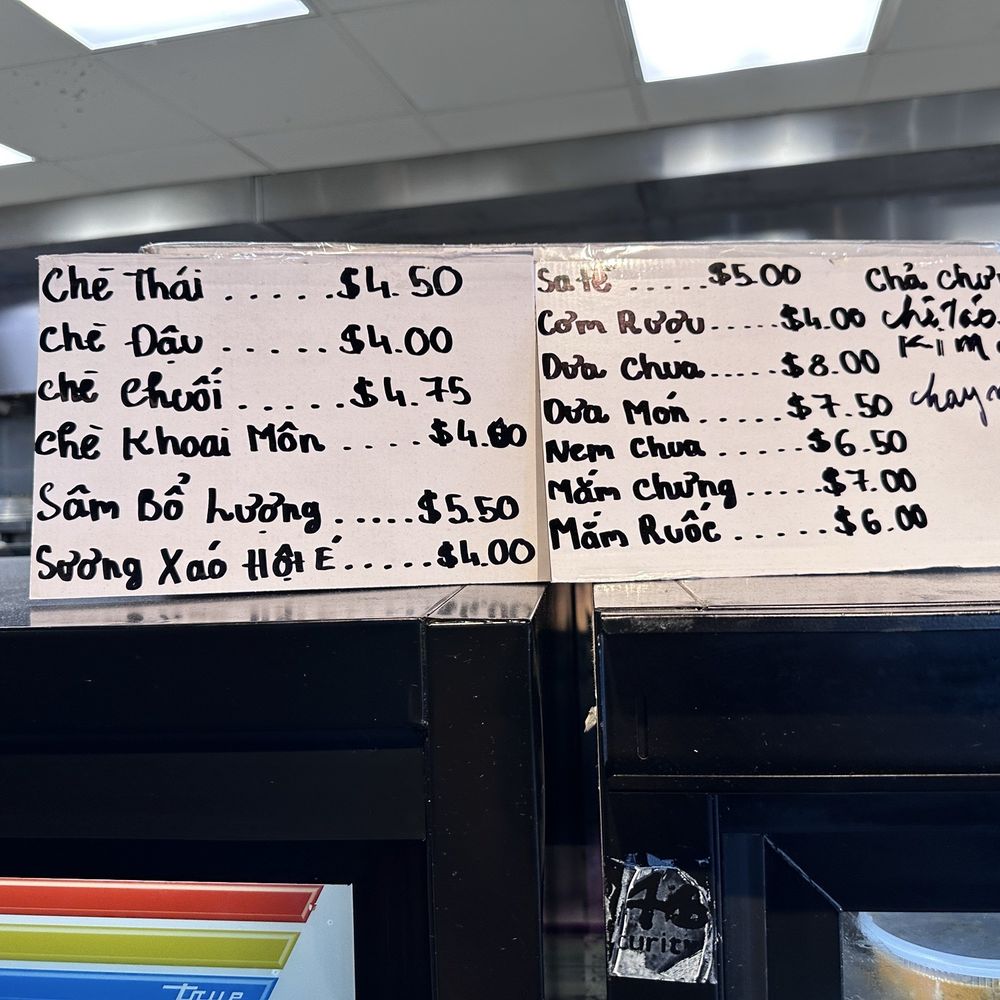 Chè Thái ..... $4.50
Chè Đậu ...... $4.00
Chè Chuối ...... $4.75
Chè Khoai Môn .... $4.00
Sâm Bổ Lượng ..... $5.50
Sương Xáo Hột É ..... $4.00
Sa tế ..... $5.00
Cơm Rượu ..... $4.00
Dưa Chua ..... $8.00
Dưa Món ...... $7.50
Nem Chua ..... $6.50
Mắm Chưng ..... $7.00
Mắm Ruốc ...... $6.00
Chả
true